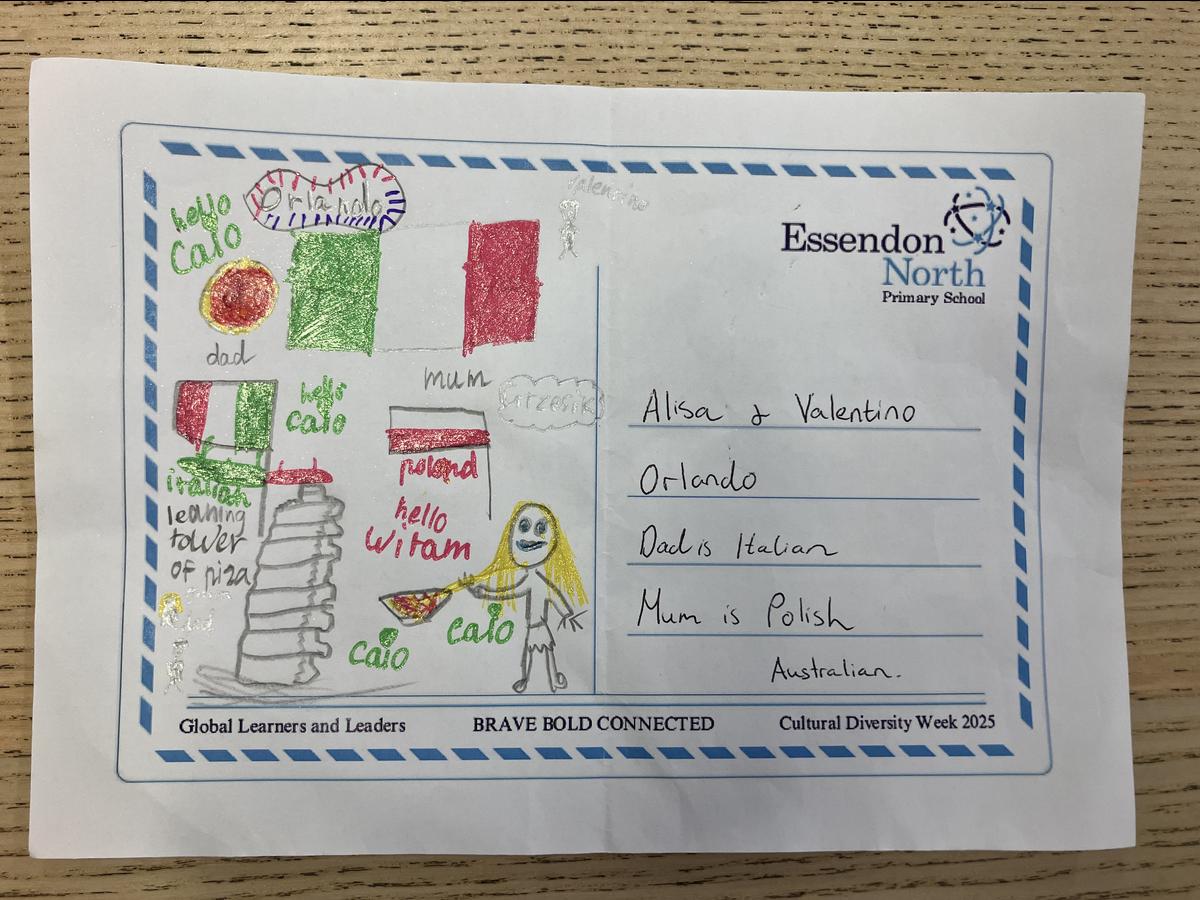 Orlando
Valentino
hello
Caio
dad
mum
hello
Caio
poland
italian
leaning
tower
of piza
hello
Witam
Caio
Caio
Essendon
North
Primary School
Alisa & Valentino
Orlando
Dad is Italian
Mum is Polish
Australian.
Global Learners and Leaders
BRAVE BOLD CONNECTED
Cultural Diversity Week 2025